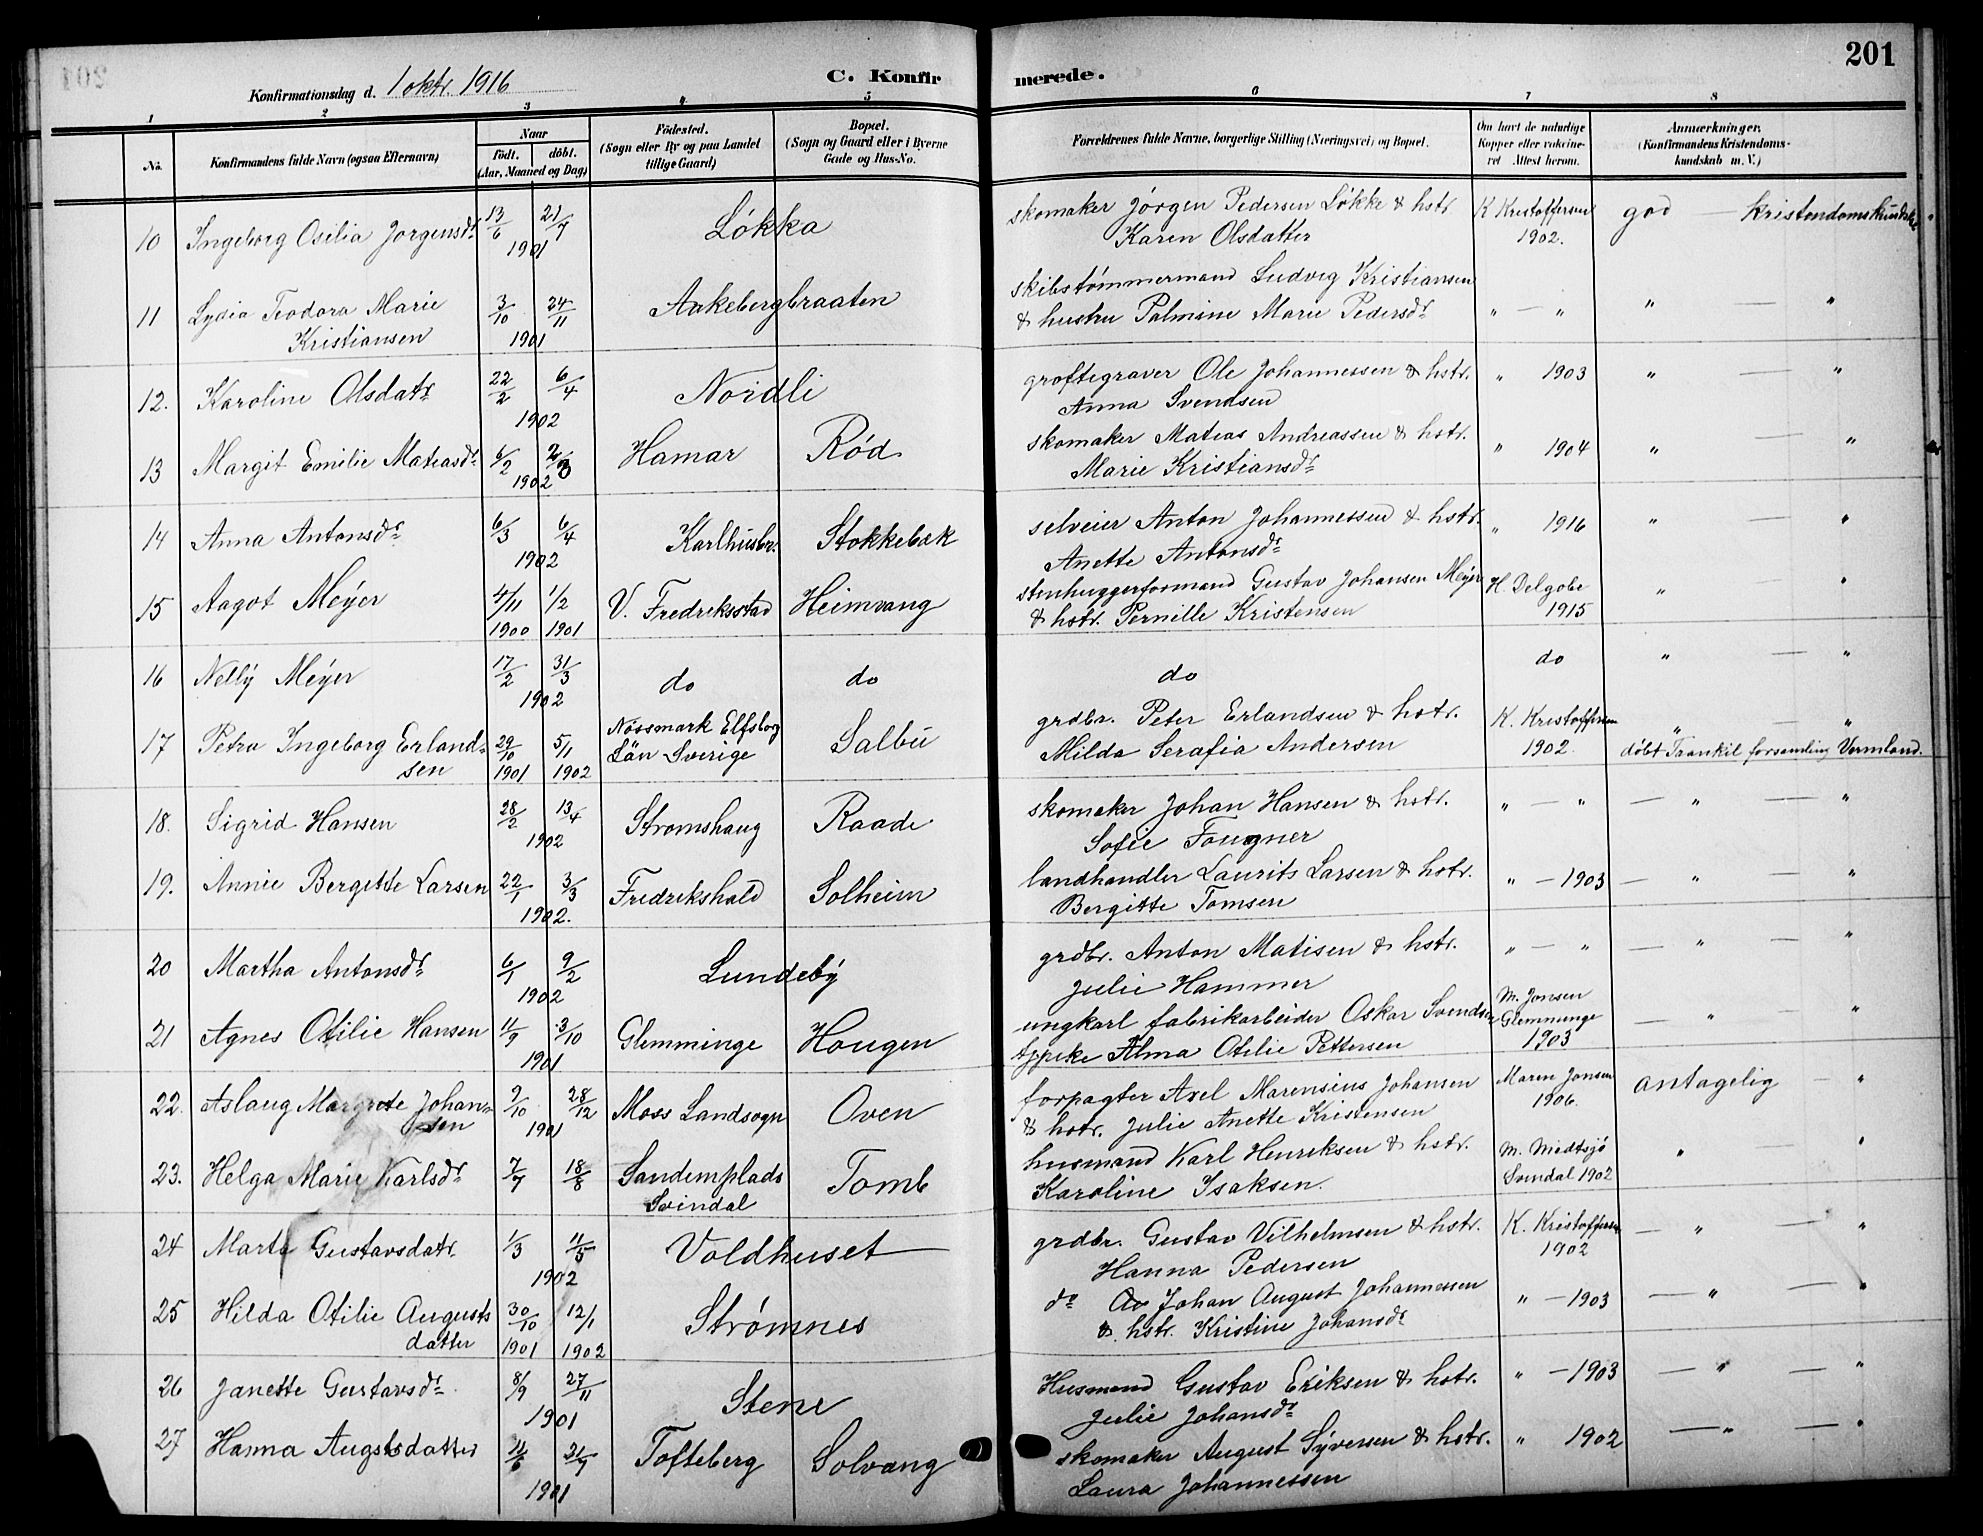 201
Konfirmationsdag d. 1 oktr. 1916
C. Konfirmerede.
1 2 3 4 5 6 7 8
No. Konfirmandens fulde Navn (ogsaa Efternavn) Naar født. døbt. (Aar, Maaned og Dag) Fødested. (Sogn eller By og paa Landet tillige Gaard) Bopæl. (Sogn og Gaard eller i Byerne Gade og Hus-No. Forældrenes fulde Navne, borgerlige Stilling (Næringsvei) og Bopæl. Om havt de naturlige Kopper eller vaccineret Attest herom. Anmærkninger. (Konfirmandens Kristendomskundskab m. V.)
10 Ingeborg Osilia Jorgensdr. 13/6 21/7 Løkka skomaker Jørgen Pedersen Løkke & hstr K Kristoffersen god — kristendomskundskab
1901 Karen Olsdatter 1902.
11 Lydia Teodora Marie 3/10 24/11 Aakebergbraaten skibstømmermand Ludvig Kristiansen
Kristiansen 1901 & hustru Palmine Marie Pedersdr " — " " — "
12. Karoline Olsdatr 22/2 6/4 Nordli grøftegraver Ole Johannessen & hstr. " 1903 " — "
1902 Anna Svendsen
13 Margit Emilie Matiasdr 6/2 2/3 Hamar Rød skomaker Matias Andreassen & hstr. " 1904 " — "
1902 Marie Kristiansdr
14 Anna Antonsdr 6/3 6/4 Karlhusbr. Stokkebæk selveier Anton Johannessen & hstr. " 1916 " — "
1902 Anette Antonsdr
15 Aagot Meÿer 4/11 1/2 V. Fredriksstad Heimvang stenhuggerformand Gustav Johansen Meÿer H. Delgobe " — "
1900 1901 & hstr. Pernille Kristensen 1915
16 Nellÿ Meÿer 17/2 31/3 do do do do " — "
1902
17 Petra Ingeborg Erland- 29/10 5/1 Nössmark Elfsborg Salbu grdbr. Peter Erlandsen & hstr. K. Kristoffersen " — "
sen 1901 1902 Län Sverige Milda Serafia Andersen 1902. døbt Trankil forsamling Vermland.
18. Sigrid Hansen 28/2 13/4 Stromshaug Raade skomaker Johan Hansen & hstr. " — " — " — "
1902 Sofie Fougner
19. Annie Bergitte Larsen 22/1 3/3 Fredrikshald Solheim landhandler Laurits Larsen & hstr. " — 1903 — " — "
1902. Bergitte Tomsen
20 Martha Antonsdr 6/1 9/2 Lundebÿ grdbr. Anton Matisen & hstr. " — " — " — "
1902 Julie Hammer
21 Agnes Otilie Hansen 11/9 3/10 Glemminge Hougen ungkarl fabrikarbeider Oskar Svendsen M. Jonsen Glemminge — " — "
1901 & pike Alma Otilie Pettersen 1903
22. Aslaug Margrete Johan- 9/10 28/12 Moss Landsogn Oven forpagter Axel Marensius Johansen Maren Jonsen antagelig — "
sen 1901 & hstr. Julie Anette Kristensen 1906.
23. Helga Marie Karlsdr 7/7 18/8 Sandemplads Tomb husmand Karl Henriksen & hstr. M. Midtsjø " — "
Svindal Karoline Isaksen. Svendal 1902
24 Marta Gustavsdatr. 1/3 11/5 Voldhuset grdbr. Gustav Vilhelmsen & hstr. K. Kristoffersen — " — "
1902 Hanna Pedersen 1902
25 Hilda Otilie Augusts 30/10 12/1 Strømnes do Johan August Johannessen " — 1903 — " — "
datter 1901 1902 & hstr. Kristine Johansdr
26 Janette Gustavsdr. 8/9 27/11 Stene Husmand Gustav Eriksen & hstr. " — 1903 — " — "
1901 Julie Johansdr
27 Hanna Augstsdatter 11/6 21/7 Tofteberg Solvang skomaker August Sÿversen & hstr. " 1902 — " — "
1901 Laura Johannessen